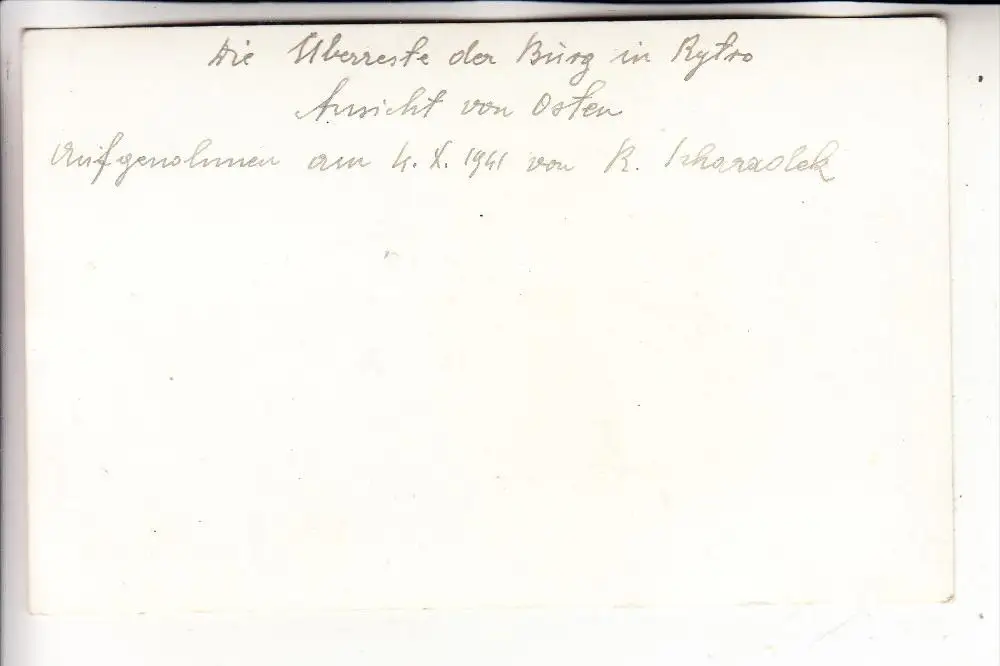 Die Überreste der Burg in Rytro
Ansicht von Osten
Aufgenohmen am 4. X. 1941 von R.